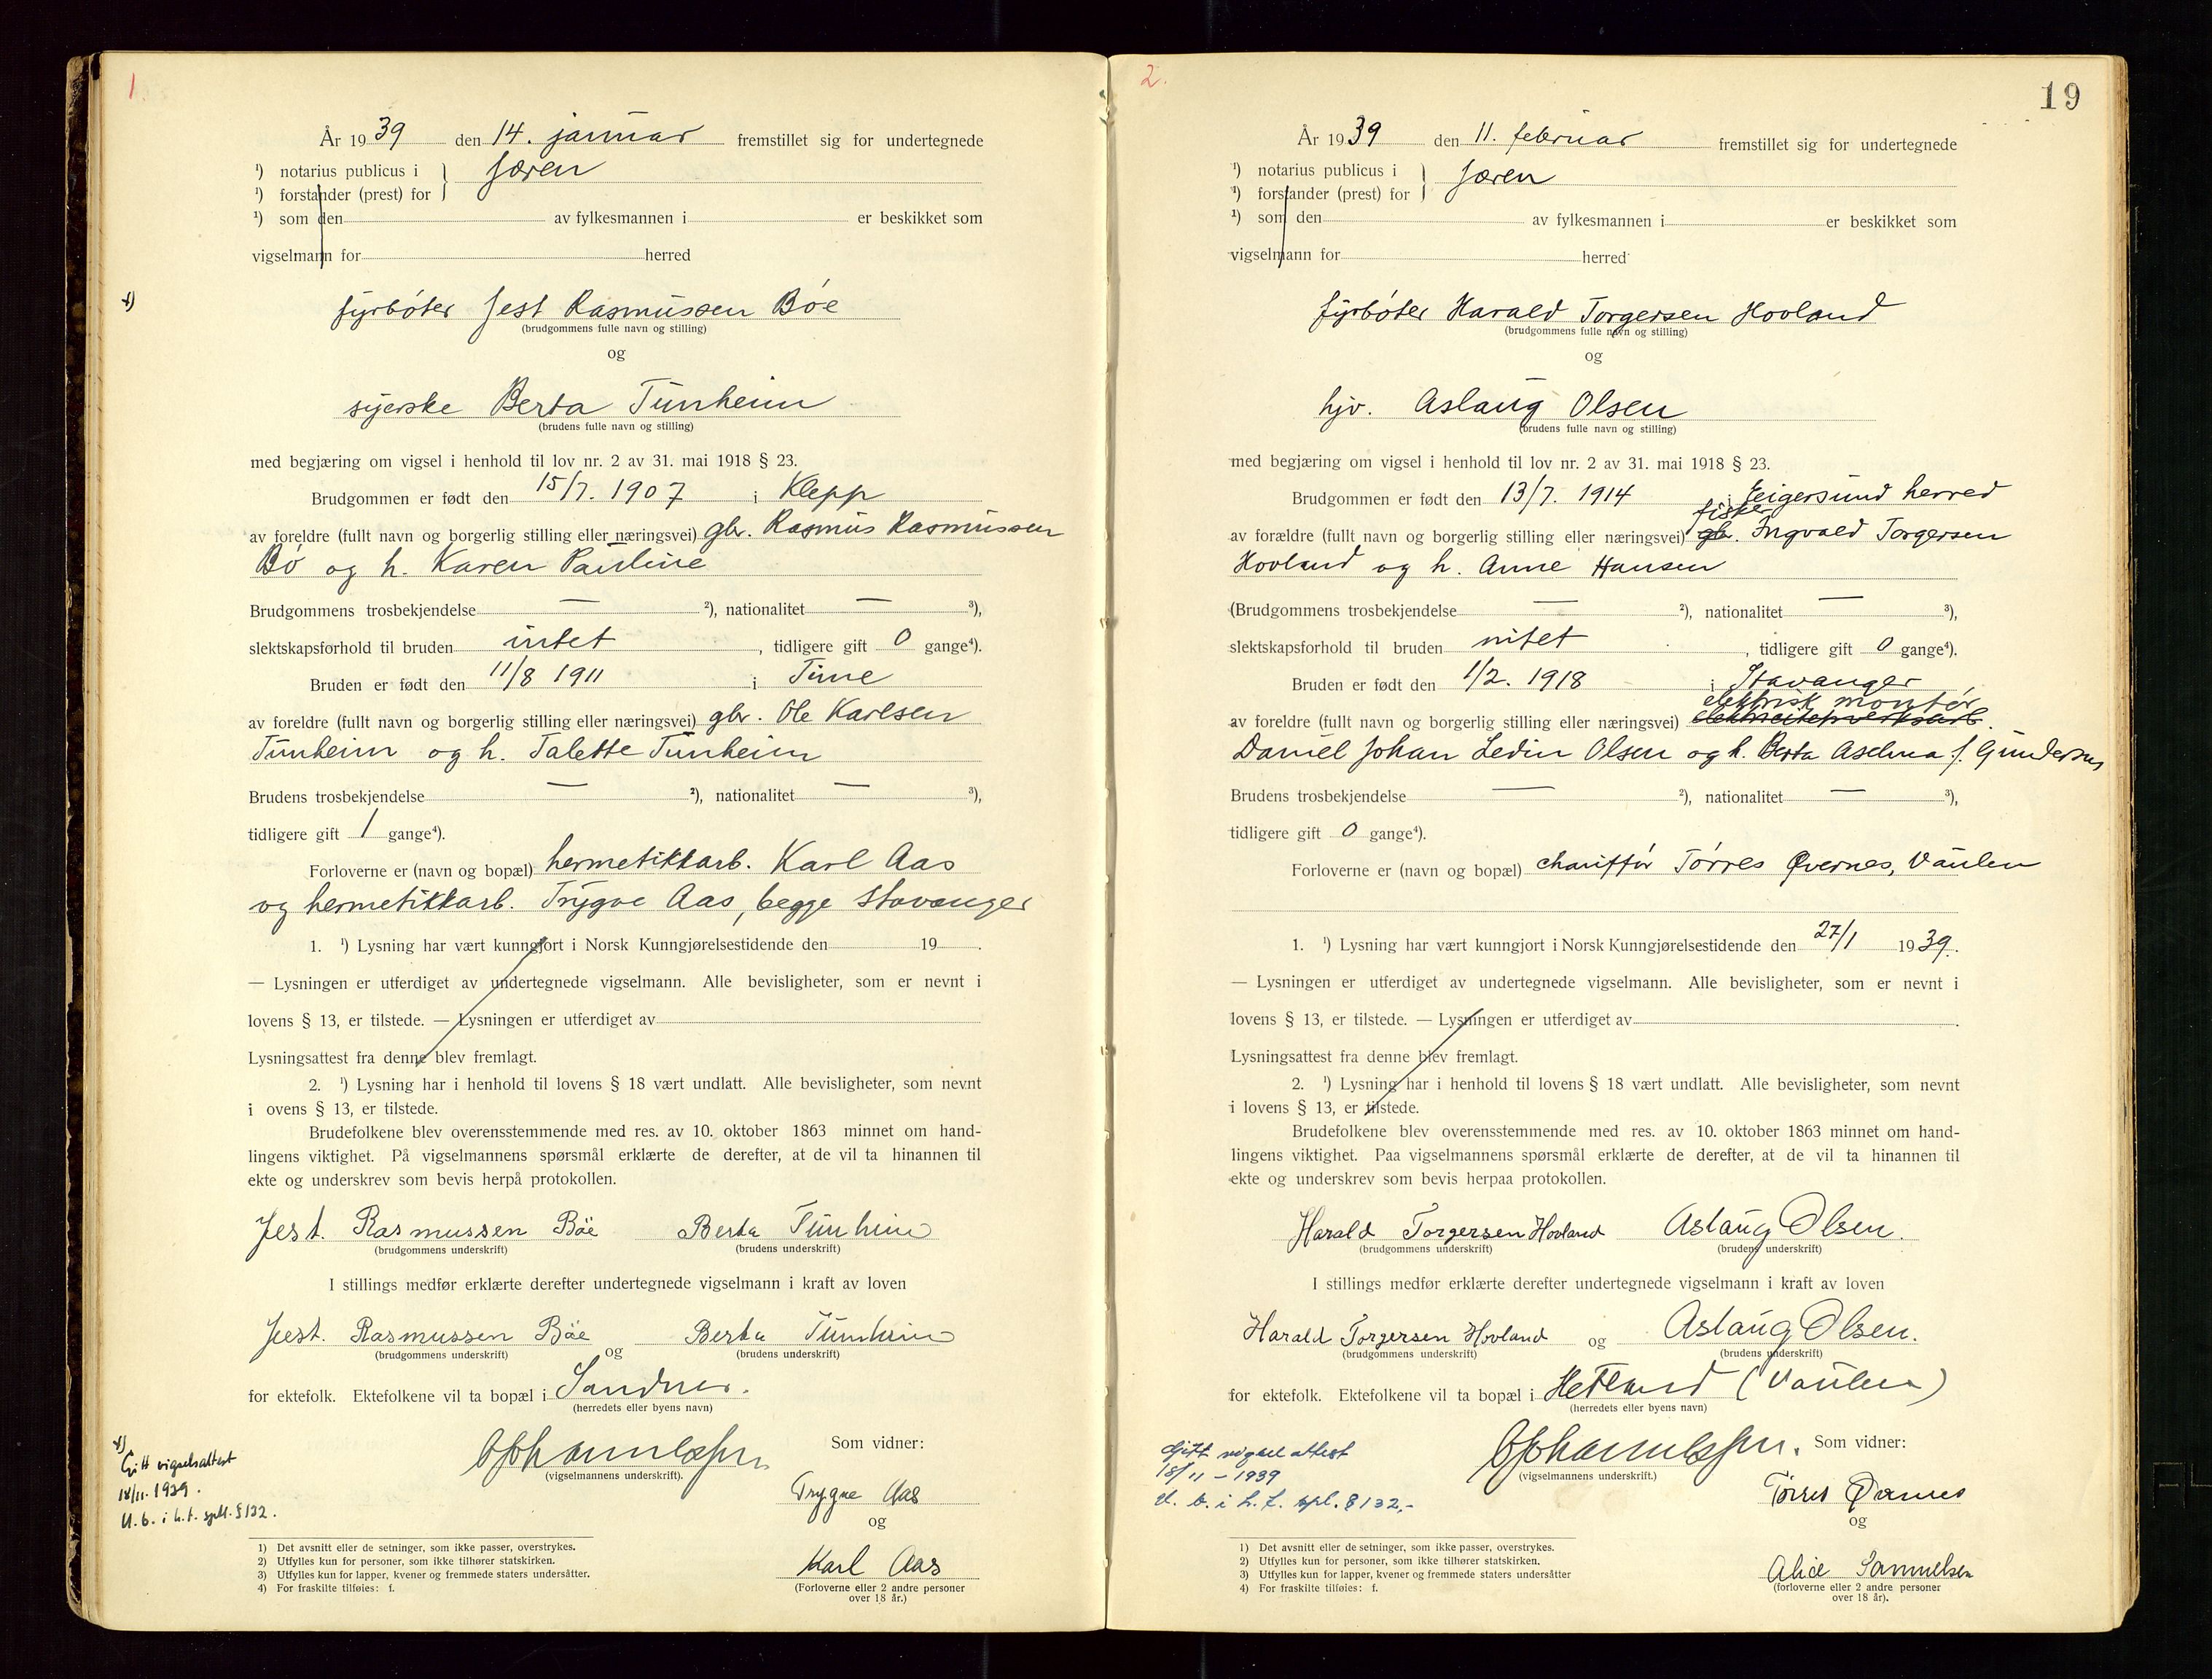 1.
År 1939 den 14. januar fremstillet sig for undertegnede
¹) notarius publicus i } Jæren
¹) forstander (prest) for
¹) som den av fylkesmannen i er beskikket som
vigselmann for herred
1)
fyrbøter Jest Rasmussen Bøe
(brudgommens fulle navn og stilling)
og
syerske Berta Tunheim
(brudens fulle navn og stilling)
med begjæring om vigsel i henhold til lov nr. 2 av 31. mai 1918 § 23.
Brudgommen er født den 15/7. 1907 i Klepp
av foreldre (fullt navn og borgerlig stilling eller næringsvei) gbr. Rasmus Rasmussen
Bø og h. Karen Pauline
Brudgommens trosbekjendelse — ²), nationalitet — ³),
slektskapsforhold til bruden intet, tidligere gift 0 gange⁴).
Bruden er født den 11/8 1911 i Time
av foreldre (fullt navn og borgerlig stilling eller næringsvei) gbr. Ole Karlsen
Tunheim og h. Talette Tunheim
Brudens trosbekjendelse — ²), nationalitet — ³),
tidligere gift 1 gange⁴).
Forloverne er (navn og bopæl) hermetikkarb. Karl Aas
og hermetikkarb. Trygve Aas, begge Stavanger
1. ¹) Lysning har vært kunngjort i Norsk Kunngjørelsestidende den 19 .
— Lysningen er utferdiget av undertegnede vigselmann. Alle bevisligheter, som er nevnt i
lovens § 13, er tilstede. — Lysningen er utferdiget av
Lysningsattest fra denne blev fremlagt.
2. ¹) Lysning har i henhold til lovens § 18 vært undlatt. Alle bevisligheter, som nevnt
i ovens § 13, er tilstede.
Brudefolkene blev overensstemmende med res. av 10. oktober 1863 minnet om hand-
lingens viktighet. På vigselmannens spørsmål erklærte de derefter, at de vil ta hinannen til
ekte og underskrev som bevis herpå protokollen.
Jest. Rasmussen Bøe Berta Tunheim
(brudgommens underskrift) (brudens underskrift)
I stillings medfør erklærte derefter undertegnede vigselmann i kraft av loven
Jest. Rasmussen Bøe og Berta Tunheim
(brudgommens underskrift) (brudens underskrift)
for ektefolk. Ektefolkene vil ta bopæl i Sandnes.
(herredets eller byens navn)
(vigselmannens underskrift).
Som vidner:
Trygve Aas
og
Karl Aas
(Forloverne eller 2 andre personer
over 18 år.)
1)
Gitt vigselsattest
18/11. 1939.
U. b. i h. t. spll. § 132.
1) Det avsnitt eller de setninger, som ikke passer, overstrykes.
2) Utfylles kun for personer, som ikke tilhører statskirken.
3) Utfylles kun for lapper, kvener og fremmede staters undersåtter.
4) For fraskilte tilføies: f.
2.
19
År 1939 den 11. februar fremstillet sig for undertegnede
¹) notarius publicus i } Jæren
¹) forstander (prest) for
¹) som den av fylkesmannen i er beskikket som
vigselmann for herred
fyrbøter Harald Torgersen Hovland
(brudgommens fulle navn og stilling)
og
hjv. Aslaug Olsen
(brudens fulle navn og stilling)
med begjæring om vigsel i henhold til lov nr. 2 av 31. mai 1918 § 23.
Brudgommen er født den 13/7. 1914 i Eigersund herred
fisker
av forældre (fullt navn og borgerlig stilling eller næringsvei) gbr. Ingvald Torgersen
Hovland og h. Anne Hansen
(Brudgommens trosbekjendelse — ²), nationalitet — ³),
slektskapsforhold til bruden intet, tidligere gift 0 gange⁴).
Bruden er født den 1/2. 1918 i Stavanger
elektrisk montør
av foreldre (fullt navn og borgerlig stilling eller næringsvei) elektricitetsverksarb.
Daniel Johan Ledin Olsen og h. Berta Aselma f. Gundersen
Brudens trosbekjendelse — ²), nationalitet — ³),
tidligere gift 0 gange⁴).
Forloverne er (navn og bopæl) chauffør Tørres Øvernes, Vaulen
1. ¹) Lysning har vært kunngjort i Norsk Kunngjørelsestidende den 27/1 1939.
— Lysningen er utferdiget av undertegnede vigselmann. Alle bevisligheter, som er nevnt i
lovens § 13, er tilstede. — Lysningen er utferdiget av .
Lysningsattest fra denne blev fremlagt.
2. ¹) Lysning har i henhold til lovens § 18 vært undlatt. Alle bevisligheter, som nevnt
i lovens § 13, er tilstede.
Brudefolkene blev overensstemmende med res. av 10. oktober 1863 minnet om hand-
lingens viktighet. Paa vigselmannens spørsmål erklærte de derefter, at de vil ta hinannen til
ekte og underskrev som bevis herpaa protokollen.
Harald Torgersen Hovland Aslaug Olsen.
(brudgommens underskrift) (brudens underskrift)
I stillings medfør erklærte derefter undertegnede vigselmann i kraft av loven
Harald Torgersen Hovland og Aslaug Olsen.
(brudgommens underskrift) (brudens underskrift)
for ektefolk. Ektefolkene vil ta bopæl i Hetland (Vaulen)
(herredets eller byens navn)
(vigselmannens underskrift.)
Som vidner:
Tørres Øvernes
og
Alice Samuelsen
(forloverne eller 2 andre personer
over 18 år).
Gitt vigselattest
18/11 – 1939
U. b. i h. t. spl. § 132,-
1) Det avsnitt eller de setninger, som ikke passer, overstrykes.
2) Utfylles kun for personer, som ikke tilhører statskirken.
3) Utfylles kun for lapper, kvener og fremmede staters undersåtter
4) For fraskilte tilføies: f.